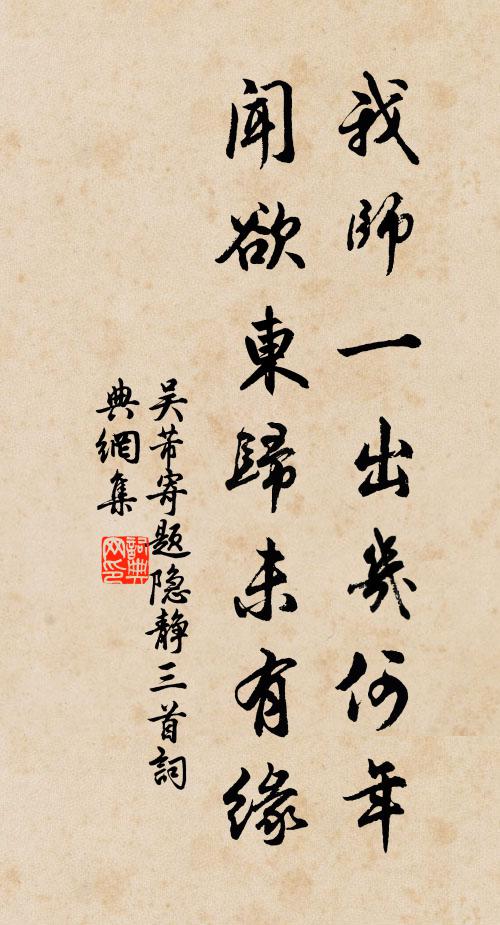 我師一出幾何年
聞欲東歸未有緣
吴芾寄题隐静三首詞
典網集
詞典
网印